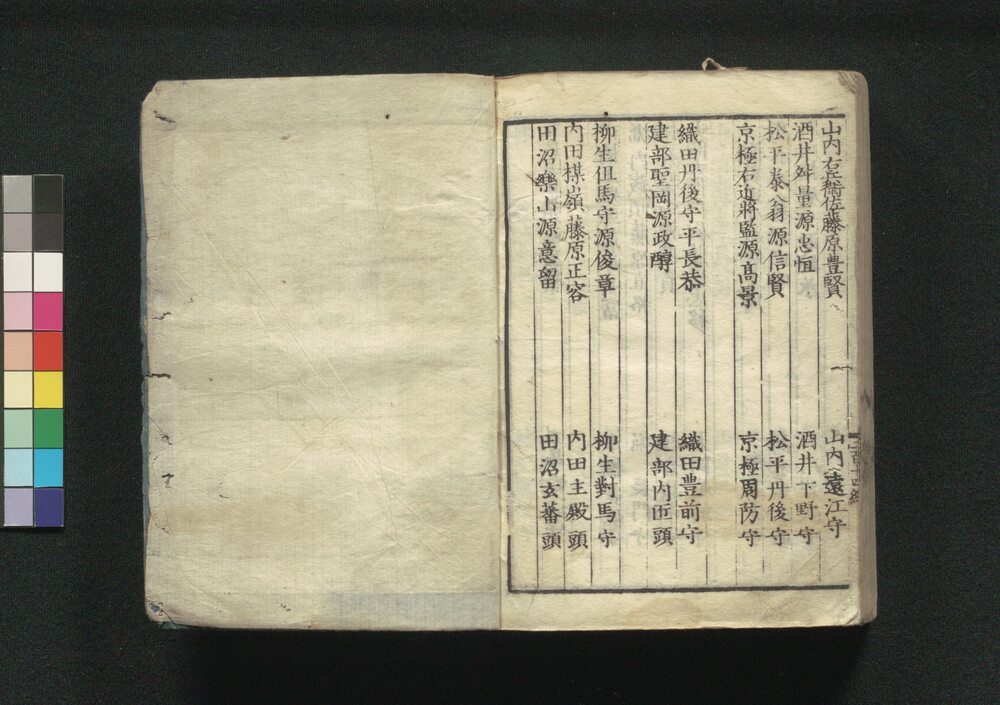 山内右兵衞佐藤原豊賢　山内遠江守
酒井舛量源忠恒　酒井下野守
松平泰翁源信賢　松平丹後守
京極右近將監源髙景　京極周防守
織田丹後守平長恭　織田豊前守
建部聖岡源政醇　建部内匠頭
柳生但馬守源俊章　柳生對馬守
内田楳嶺藤原正容　内田主殿頭
田沼樂山源意留　田沼玄蕃頭